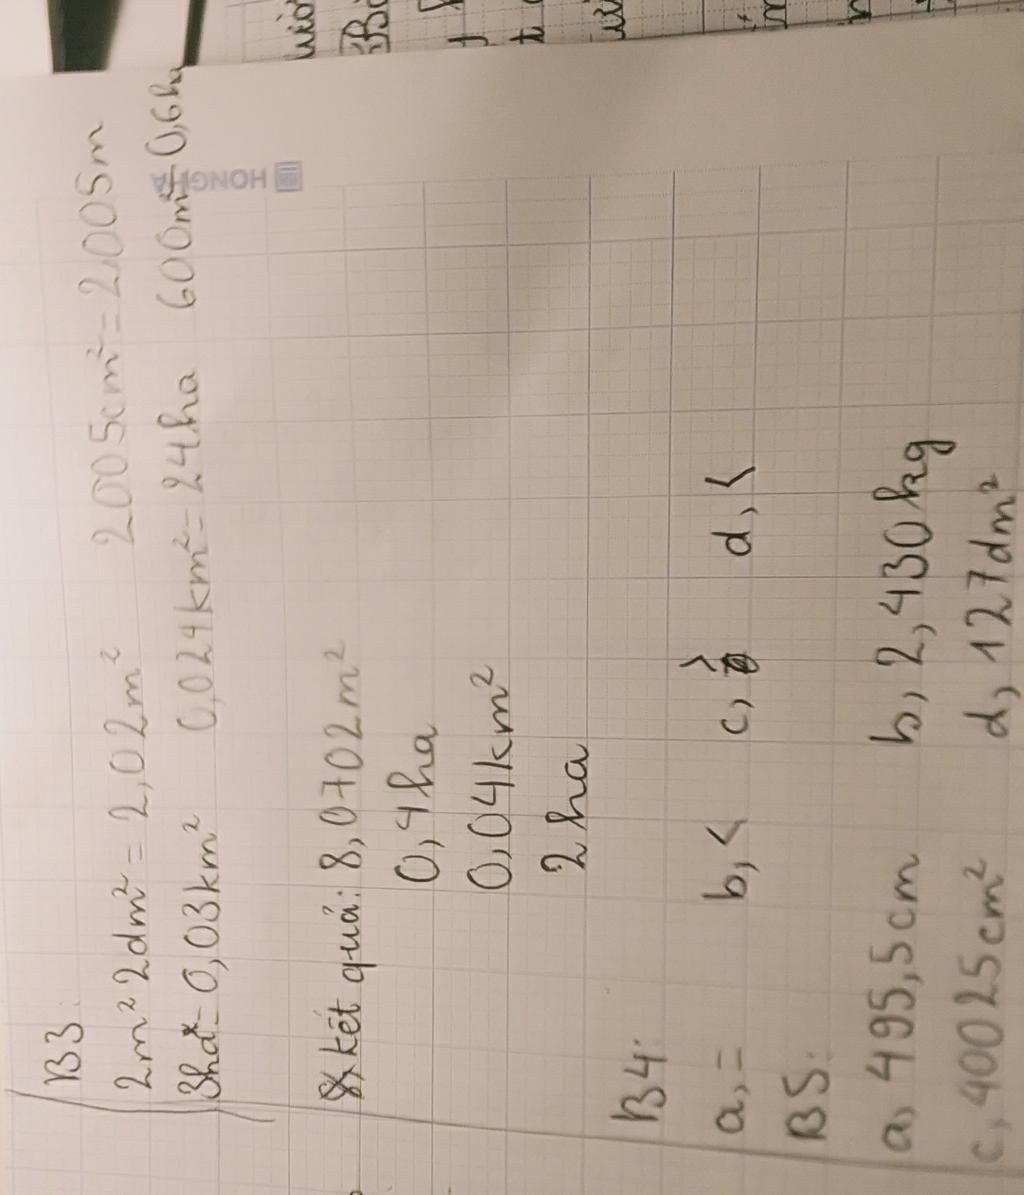 B3:
2m² 2dm² = 2,02m² 2005cm² = 2,005m
3ha = 0,03km² 0,024km² = 24ha 600m² = 0,6ha
kết quả: 8,0702m²
0,4ha
0,04km²
2ha
B4:
a, = b, < c, > d, <
B5:
a, 495,5cm b, 2,430kg
c, 40025cm² d, 127dm²
HONG